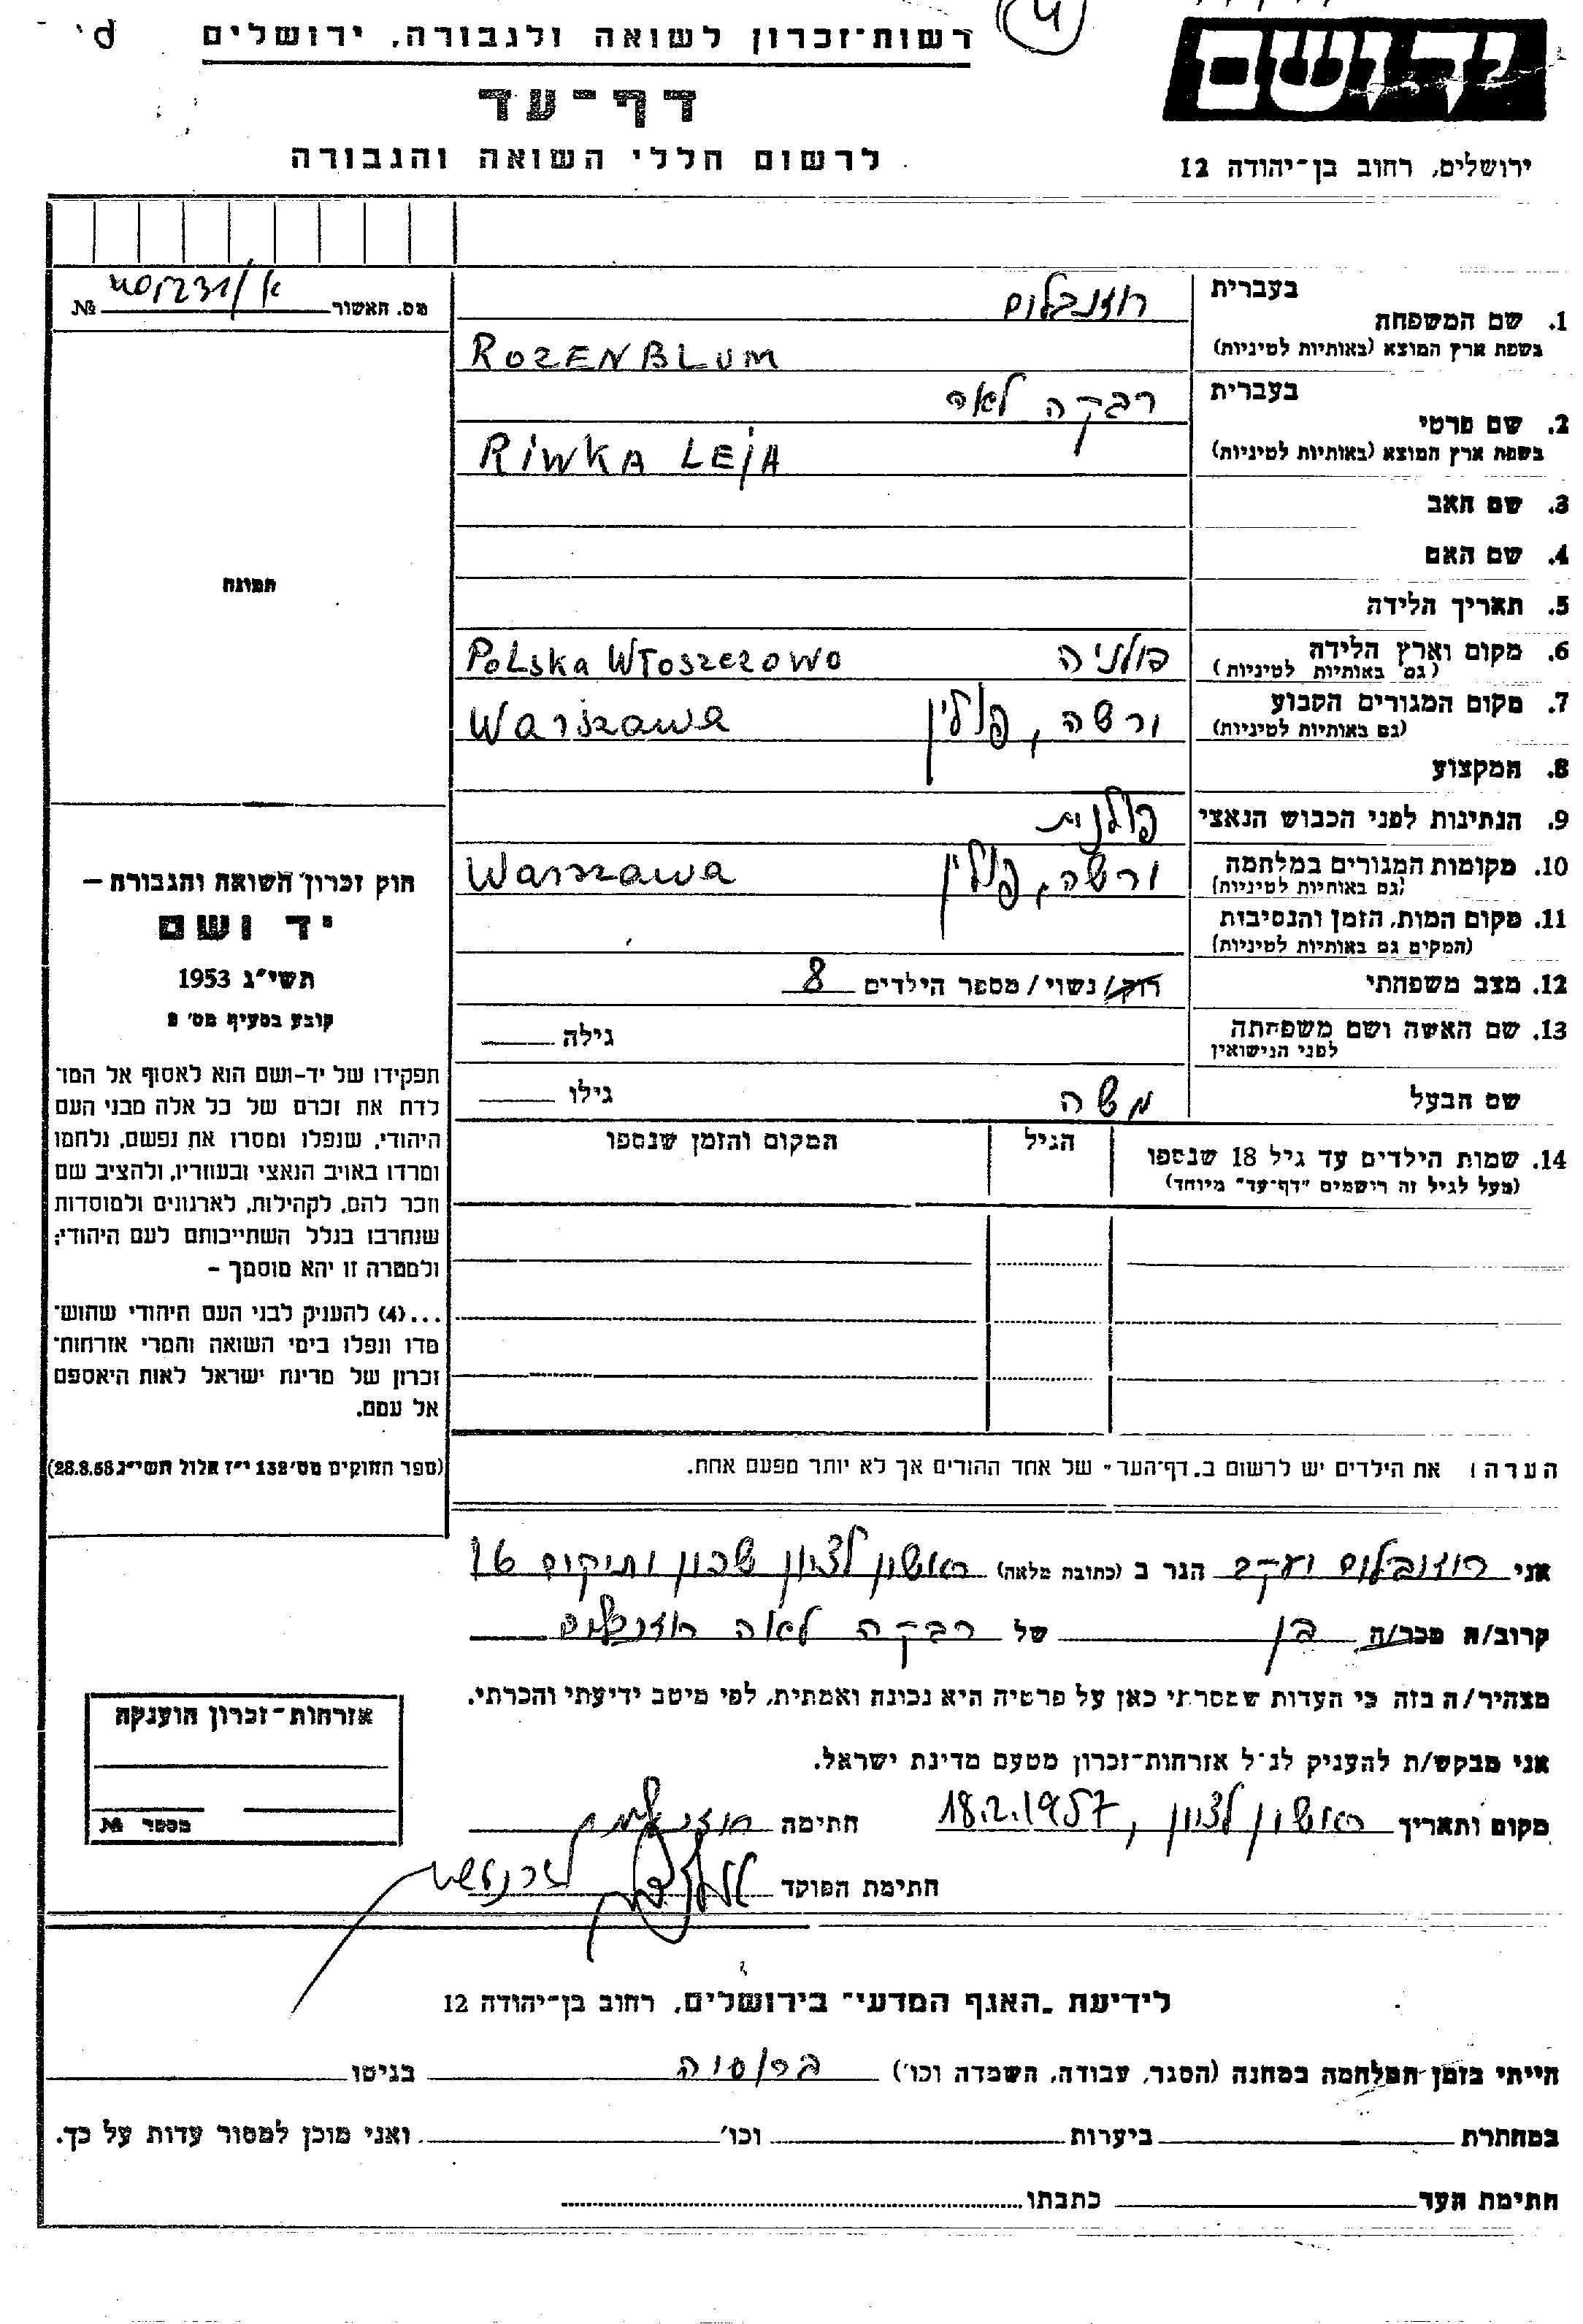 רשות־זכרון לשואה ולגבורה, ירושלים
יד ושם
דף־עד
לרשום חללי השואה והגבורה
ירושלים, רחוב בן־יהודה 12
מס. האשור №
תמונה
חוק זכרון השואה והגבורה –
יד ושם
תשי״ג 1953
קובע בסעיף מס׳ 2
תפקידו של יד-ושם הוא לאסוף אל המו־
לדת את זכרם של כל אלה מבני העם
היהודי, שנפלו ומסרו את נפשם, נלחמו
ומרדו באויב הנאצי ובעוזריו, ולהציב שם
וזכר להם, לקהילות, לארגונים ולמוסדות
שנחרבו בגלל השתייכותם לעם היהודי;
ולמטרה זו יהא מוסמך –
...(4) להעניק לבני העם היהודי שהוש־
מדו ונפלו בימי השואה והמרי אזרחות־
זכרון של מדינת ישראל לאות היאספם
אל עמם.
(ספר החוקים מס׳ 132 י״ז אלול תשי״ג 28.8.53)
1. שם המשפחה בעברית רוזנבלום
בשפת ארץ המוצא (באותיות לטיניות) ROZENBLUM
2. שם פרטי בעברית רבקה לאה
בשפת ארץ המוצא (באותיות לטיניות) RIWKA LEJA
3. שם האב
4. שם האם
5. תאריך הלידה
6. מקום וארץ הלידה (גם באותיות לטיניות) פולניה Polska Włoszczowo
7. מקום המגורים הקבוע (גם באותיות לטיניות) ורשה, פולין Warszawa
8. המקצוע
9. הנתינות לפני הכבוש הנאצי פולנית
10. מקומות המגורים במלחמה (גם באותיות לטיניות) ורשה, פולין Warszawa
11. מקום המות, הזמן והנסיבות (המקום גם באותיות לטיניות)
12. מצב משפחתי רוק/ נשוי / מספר הילדים 8
13. שם האשה ושם משפחתה לפני הנישואין גילה
שם הבעל משה גילו
14. שמות הילדים עד גיל 18 שנספו הגיל המקום והזמן שנספו
(מעל לגיל זה רושמים "דף־עד" מיוחד)
הערה: את הילדים יש לרשום ב„דף־העד" של אחד ההורים אך לא יותר מפעם אחת.
אני רוזנבלום יעקב הגר ב (כתובת מלאה) ראשון לציון שכון ותיקים 16
קרוב/ה מכר/ה בן של רבקה לאה רוזנבלום
מצהיר/ה בזה כי העדות שמסרתי כאן על פרטיה היא נכונה ואמתית, לפי מיטב ידיעתי והכרתי.
אני מבקש/ת להעניק לנ״ל אזרחות־זכרון מטעם מדינת ישראל.
מקום ותאריך ראשון לציון, 18.2.1957 חתימה
חתימת הפוקד
אזרחות־זכרון הוענקה
מספר №
לידיעת „האגף המדעי" בירושלים, רחוב בן־יהודה 12
הייתי בזמן המלחמה במחנה (הסגר, עבודה, השמדה וכו׳) ברוסיה בגיטו
במחתרת ביערות וכו׳ ואני מוכן למסור עדות על כך.
חתימת העד כתבתו